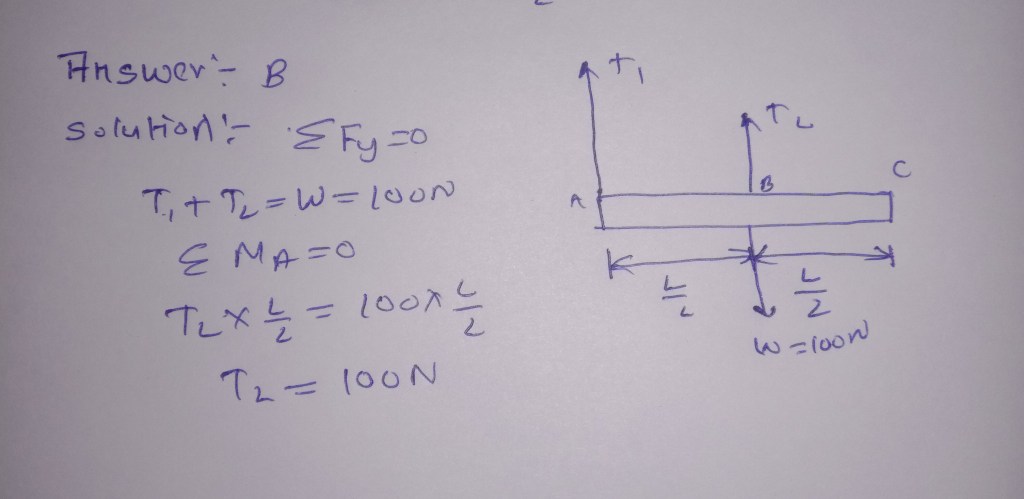 Answer:- B
Solution:- ΣFy=0
T₁+T₂=W=100N
ΣMA=0
T₂×L/2=100×L/2
T₂=100N
T₁
T₂
A
B
C
L/2
L/2
W=100N